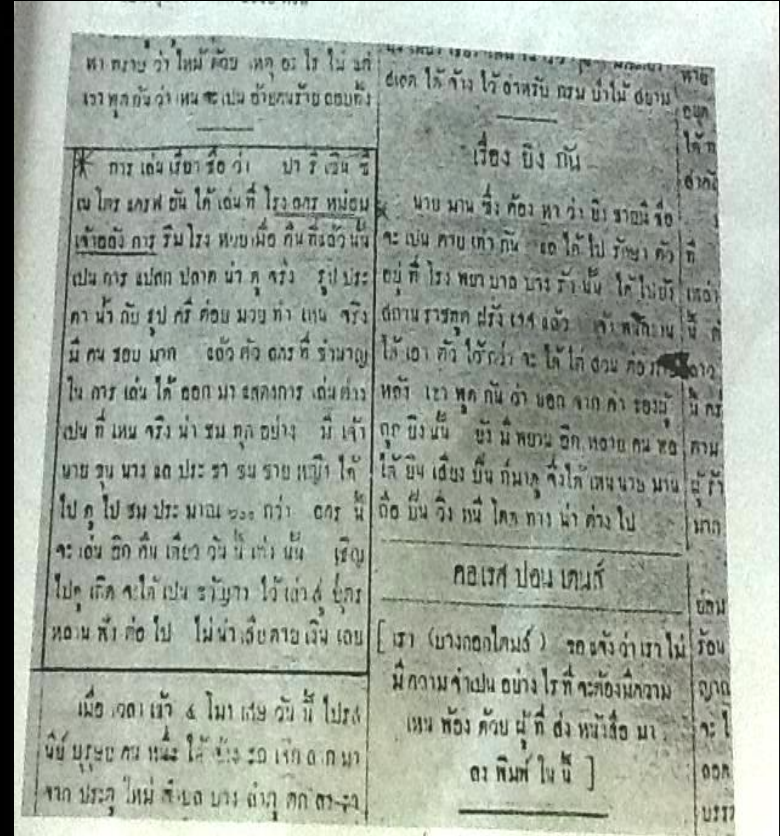 หา ทราบ ว่า ไหม้ ด้วย เหตุ อะ ไร ไม่ แก่
เขา พูด กัน ว่า เหน จะ เปน อ้ายคนร้าย ลอบทิ้ง
การ เล่น เรียก ชื่อ ว่า ปา ริ เซิน ซี
เน โตร แกรฟ อัน ได้ เล่น ที่ โรง ลคร หม่อม
เจ้าอลัง การ ริม โรง หวย เมื่อ คืน ที่แล้ว นั้น
เปน การ แปลก ปลาด น่า ดู จริง รูป ประ
ดา น้ำ กับ รูป ตรี ต่อย มวย ทำ เหน จริง
มี คน ชอบ มาก แล้ว ตัว ลคร ที่ ชำนาญ
ใน การ เล่น ได้ ออก มา แสดงการ เล่นต่าง
เปน ที่ เหน จริง น่า ชม ทุก อย่าง มี เจ้า
นาย ขุน นาง แล ประ ชา ชน ชาย หญิง ได้
ไป ดู ไป ชม ประ มาณ ๖๐๐ กว่า ลคร นี้
จะ เล่น อีก คืน เดียว วัน นี้ เท่า นั้น เชิญ
ไปดู เถิด จะได้ เปน ขวัญตา ไว้ เล่า สู่ บุตร
หลาน ฟัง ต่อ ไป ไม่ น่า เสีย ดาย เงิน เลย
เมื่อ เวลา เช้า ๔ โมง เศษ วัน นี้ ไปรส
นีย์ บุรุษย คน หนึ่ง ได้ จ้าง รถ เจ๊ก ลาก มา
จาก ประตู ใหม่ บาง ลำภู ตก
สเตด ได้ จ้าง ไว้ สำหรับ กรม ป่าไม้ สยาม
เรื่อง ยิง กัน
นาย มาน ซึ่ง ต้อง หา ว่า ยิง ชายมี ชื่อ
จะ เปน ตาย เท่า กัน แล ได้ ไป รักษา ตัว
อยู่ ที่ โรง พยา บาล บาง รัก นั้น ได้ ไปยัง
สถาน ราชทูต ฝรั่ง เศส แล้ว เจ้า พนักงาน
ได้ เอา ตัว ไว้กว่า จะ ได้ ไต่ สวน ต่อ
หลัง เขา พูด กัน ว่า นอก จาก คำ ของผู้
ถูก ยิง นั้น ยัง มี พยาน อีก หลาย คน พอ
ได้ ยิน เสียง ปืน ก็มาดู จึ่งได้ เหนนาย มาน
ถือ ปืน วิ่ง หนี โดด ทาง น่า ต่าง ไป
คอเรศ ปอน เดนส์
[ เรา (บางกอกไตมส์) ขอ แจ้ง ว่า เรา ไม่
มี ความ จำเปน อย่าง ไร ที่ จะต้องมีความ
เหน พ้อง ด้วย ผู้ ที่ ส่ง หนังสือ มา
ลง พิมพ์ ใน นี้ ]